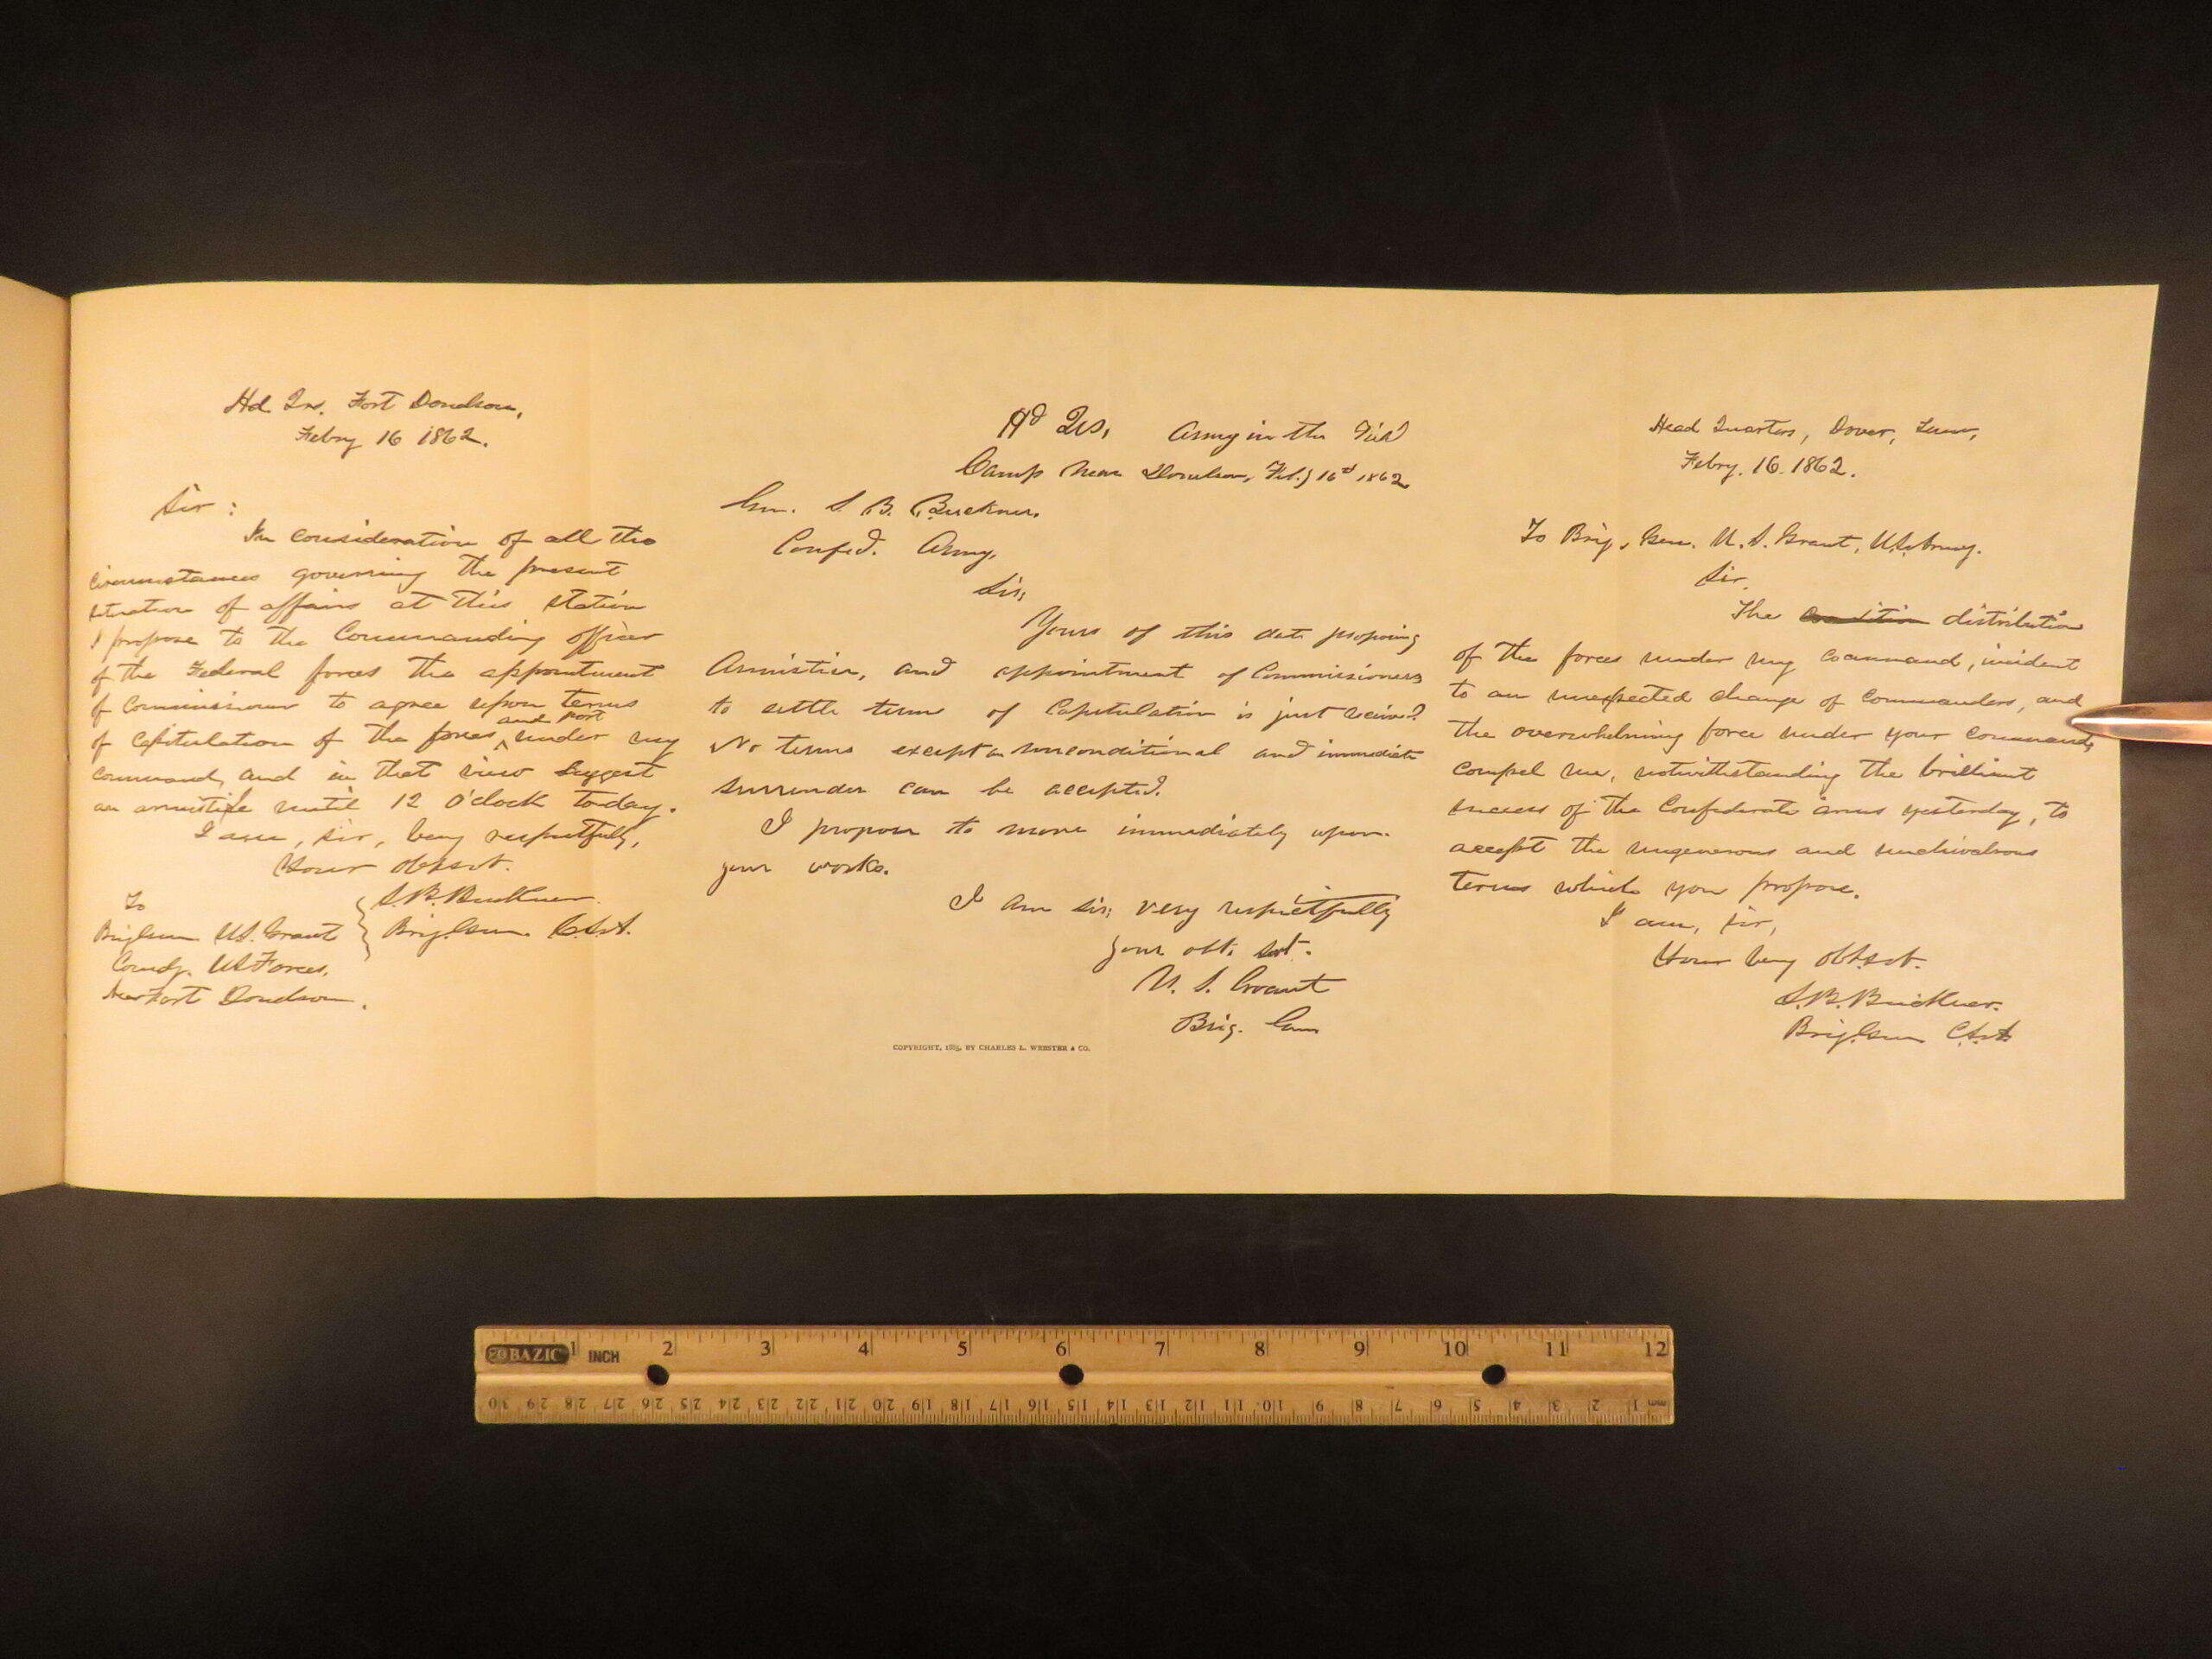 Hd Qrs. Fort Donelson,
Febry 16 1862.
Sir :
In consideration of all the
circumstances governing the present
situation of affairs at this station
I propose to the Commanding officer
of the Federal forces the appointment
of Commissioners to agree upon terms
of capitulation of the forces and post under my
command, and in that view suggest
an armistice until 12 o'clock today.
I am, sir, very respectfully,
Your obt. svt.
S. B. Buckner.
Brig. Gen. C.S.A.
To
Brig Gen. U.S. Grant
Comdg. US Forces.
Near Fort Donelson.
Hd Qrs. Army in the Field
Camp near Donelson, Feb.y 16th 1862
Gen. S. B. Buckner.
Confed. Army,
Sir;
Yours of this date proposing
Armistice, and appointment of Commissioners
to settle terms of Capitulation is just received.
No terms except an unconditional and immediate
surrender can be accepted.
I propose to move immediately upon
your works.
I am sir; very respectfully
your obt. svt.
U. S. Grant
Brig. Gen
COPYRIGHT, 1885, BY CHARLES L. WEBSTER & CO.
Head Quarters, Dover, Tenn,
Febry. 16. 1862.
To Brig. Gen. U. S. Grant, U.S. Army.
Sir,
The condition distribution
of the forces under my command, incident
to an unexpected change of commanders, and
the overwhelming force under your command,
compel me, notwithstanding the brilliant
success of the Confederate arms yesterday, to
accept the ungenerous and unchivalrous
terms which you propose.
I am, sir,
Your very obt. svt.
S. B. Buckner.
Brig. Gen C.S.A
BAZIC INCH 1 2 3 4 5 6 7 8 9 10 11 12
30 29 28 27 26 25 24 23 22 21 20 19 18 17 16 15 14 13 12 11 10 9 8 7 6 5 4 3 2 1 mm